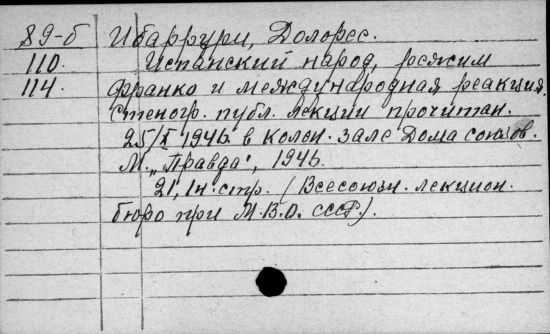 89-б Ибаррури, Долорес.
110. Испанский народ, режим
114. Франко и международная реакция.
Стеногр. публ. лекции прочитан.
25/X 1946. в колон. зале Дома союзов.
М. „Правда", 1946.
21, 1н. стр. (Всесоюзн. лекцион.
бюро при М.В.О. СССР.).